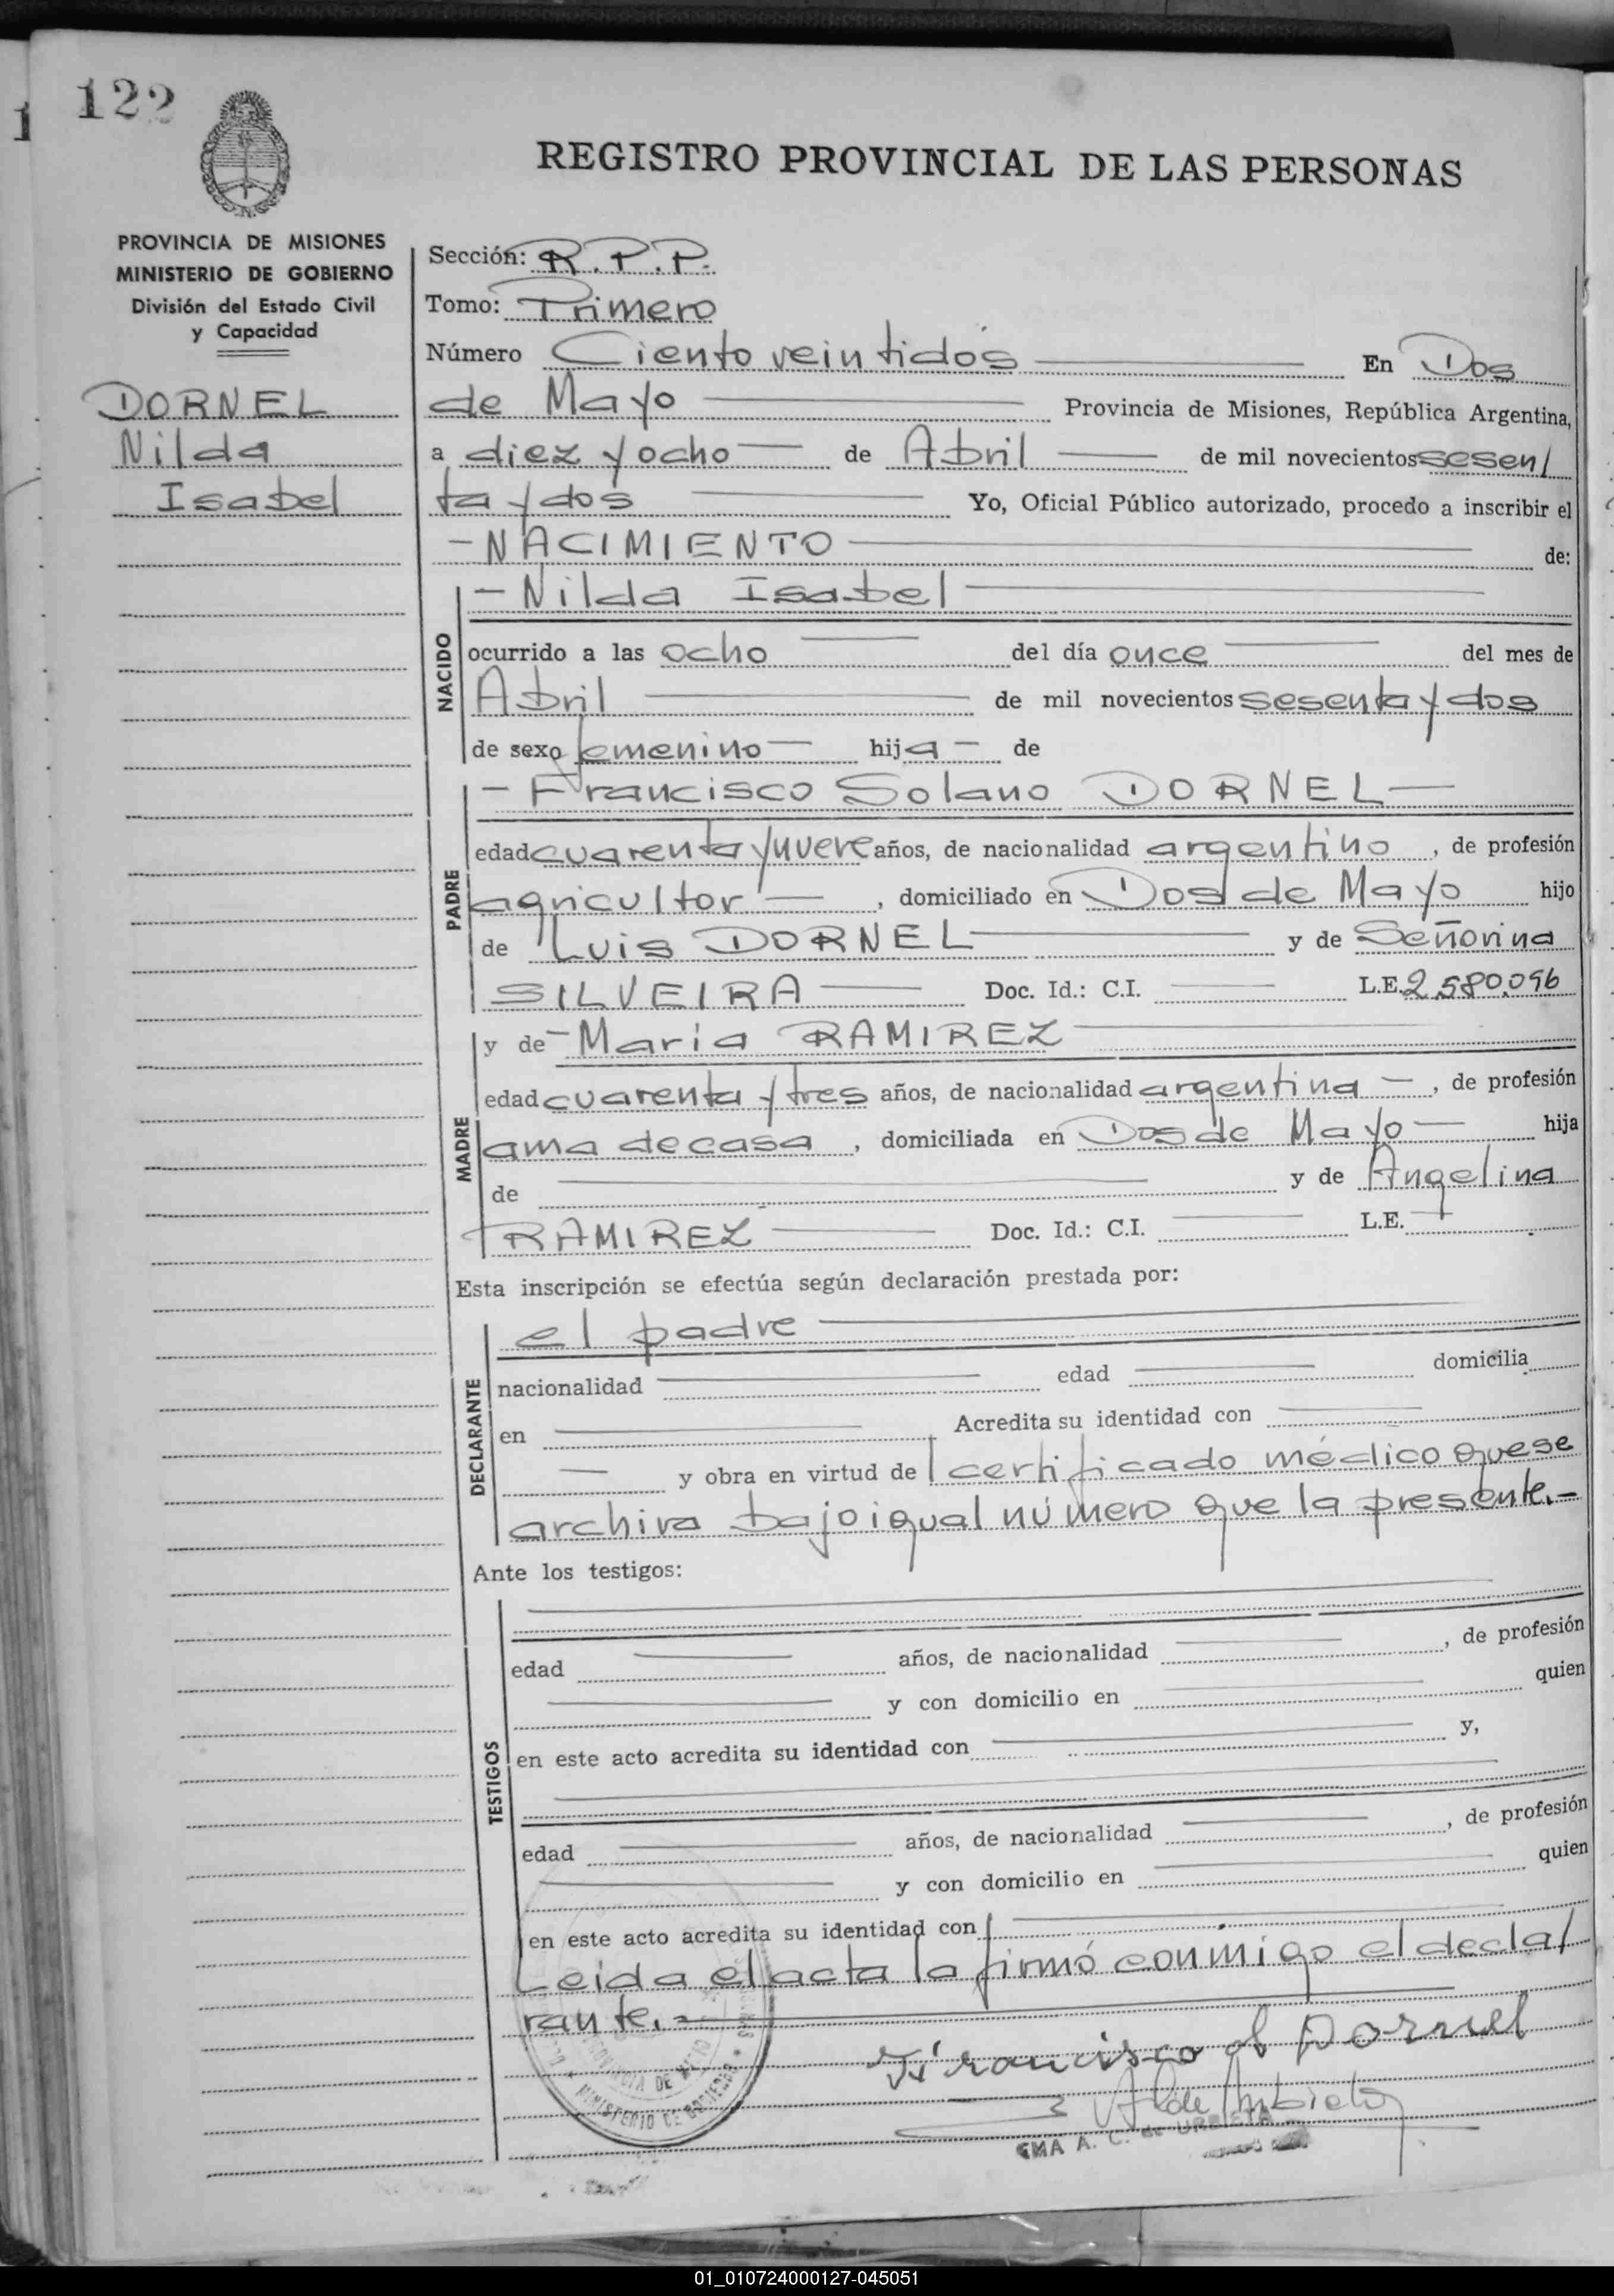 122
REGISTRO PROVINCIAL DE LAS PERSONAS
PROVINCIA DE MISIONES
MINISTERIO DE GOBIERNO
División del Estado Civil
y Capacidad
DORNEL
Nilda
Isabel
Sección: R.P.P.
Tomo: Primero
Número Ciento veintidós En Dos
de Mayo Provincia de Misiones, República Argentina,
a diez y ocho de Abril de mil novecientos sesen/
ta y dos Yo, Oficial Público autorizado, procedo a inscribir el
- NACIMIENTO de:
NACIDO
- Nilda Isabel
ocurrido a las ocho del día once del mes de
Abril de mil novecientos sesenta y dos
de sexo femenino hija de
PADRE
- Francisco Solano DORNEL
edad cuarenta y nueve años, de nacionalidad argentino, de profesión
agricultor, domiciliado en Dos de Mayo hijo
de Luis DORNEL y de Señorina
SILVEIRA Doc. Id.: C.I. L.E. 2.580.096
MADRE
y de - Maria RAMIREZ
edad cuarenta y tres años, de nacionalidad argentina, de profesión
ama de casa, domiciliada en Dos de Mayo hija
de y de Angelina
RAMIREZ Doc. Id.: C.I. L.E.
Esta inscripción se efectúa según declaración prestada por:
DECLARANTE
el padre
nacionalidad edad domicilia
en Acredita su identidad con
y obra en virtud del certificado médico que se
archiva bajo igual número que la presente.-
Ante los testigos:
TESTIGOS
edad años, de nacionalidad, de profesión
y con domicilio en quien
en este acto acredita su identidad con y,
edad años, de nacionalidad, de profesión
y con domicilio en quien
en este acto acredita su identidad con
Leida el acta la firmó conmigo el decla/
rante.=
Francisco Dornel
MINISTERIO DE GOBIERNO
A. C. de URBIETA
01_010724000127-045051